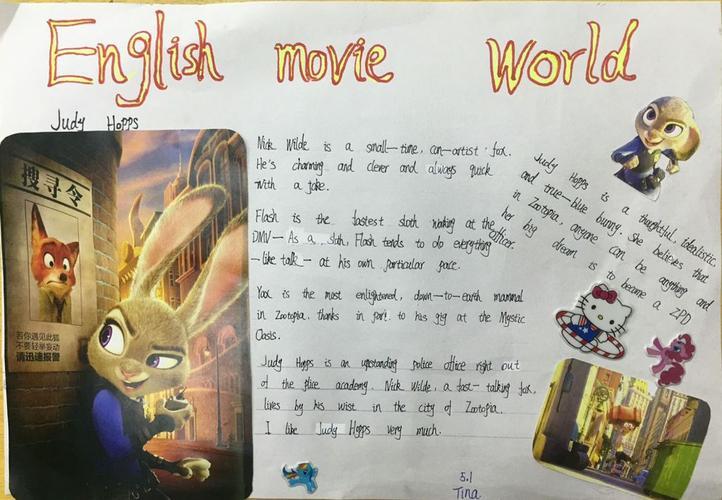 English movie World
Judy Hopps
搜寻令
若你遇见此狐
不要轻举妄动
请迅速报警
Nick Wilde is a small-time, con-artist fox.
He's charming and clever and always quick
with a joke.
Flash is the fastest sloth working at the
DMV—As a sloth, Flash tends to do everything
—like talk— at his own particular pace.
Yax is the most enlightened, down-to-earth mammal
in Zootopia. thanks in part. to his gig at the Mystic
Oasis.
Judy Hopps is an upstanding police office right out
of the plice academy. Nick Wilde, a fast-talking fox,
lives by his wist in the city of Zootopia.
I like Judy Hopps very much.
Judy Hopps is a thoughtful, idealistic
and true-blue bunny. She believes that
in Zootopia, anyone can be anything and
her big dream is to become a ZPD
officer.
5.1
Tina